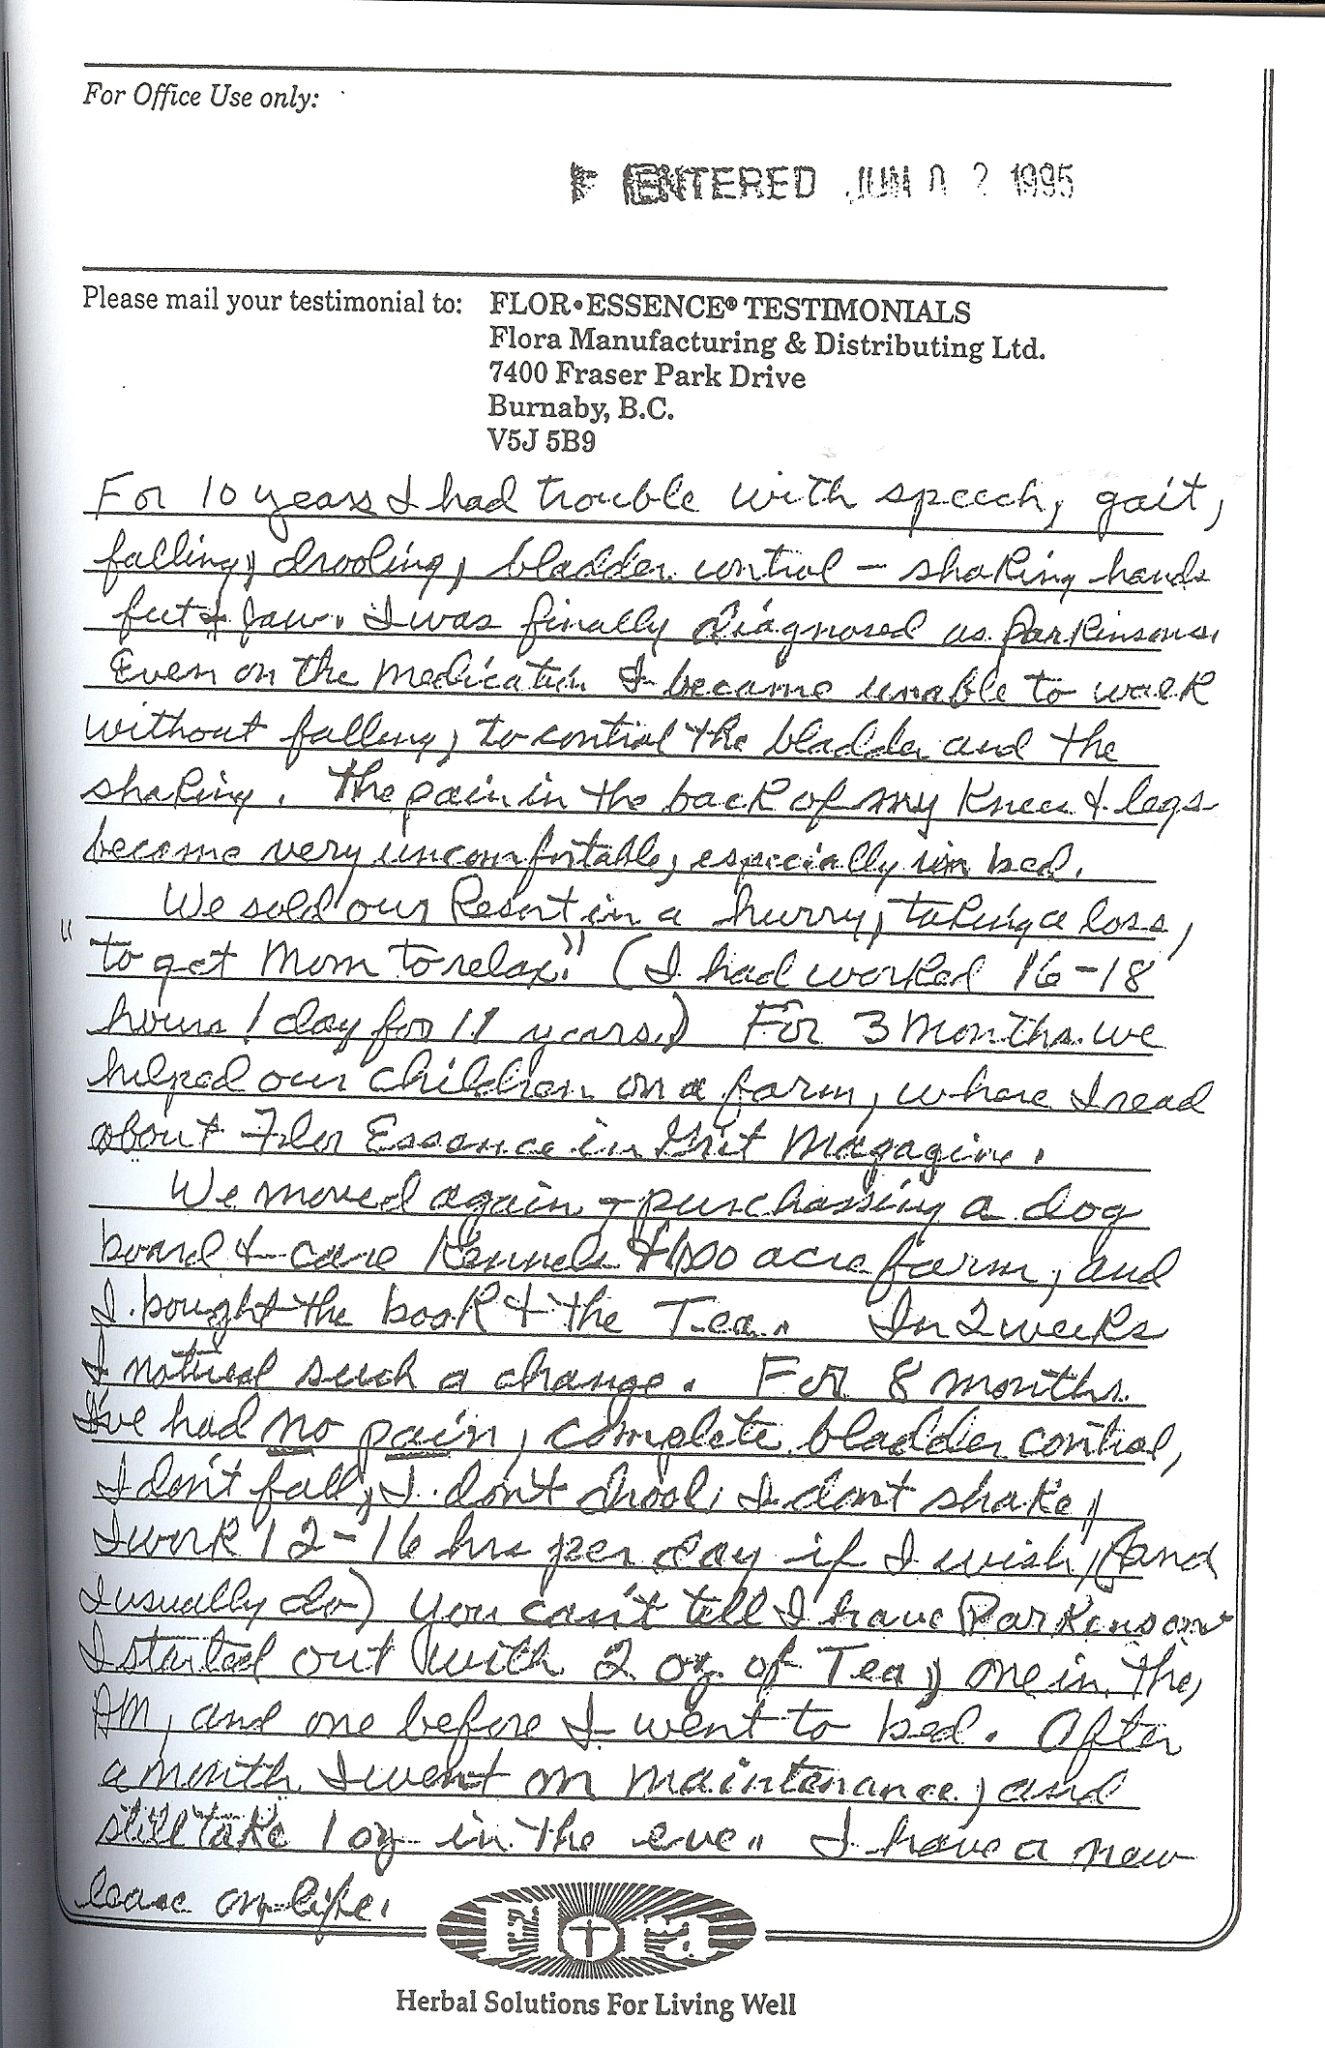 For Office Use only:
ENTERED JUN 02 1995
Please mail your testimonial to: FLOR•ESSENCE® TESTIMONIALS
Flora Manufacturing & Distributing Ltd.
7400 Fraser Park Drive
Burnaby, B.C.
V5J 5B9
For 10 years I had trouble with speech, gait,
falling, drooling, bladder control - shaking hands
feet & jaw. I was finally diagnosed as Parkinsons.
Even on the medication I became unable to walk
without falling, to control the bladder and the
shaking. The pain in the back of my knees & legs
become very uncomfortable, especially in bed.
We sold our Resort in a hurry, taking a loss,
"to get Mom to relax." (I had worked 16-18
hours / day for 11 years.) For 3 months we
helped our children on a farm, where I read
about Flor Essence in Grit Magazine.
We moved again - purchasing a dog
board & care Kennels & 100 acre farm, and
I bought the book & the Tea. In 2 weeks
I noticed such a change. For 8 months
I've had no pain, complete bladder control,
I don't fall, I don't drool, I don't shake,
I work 12-16 hrs per day if I wish, (and
I usually do) You can't tell I have Parkinsons
I started out with 2 oz of Tea, one in the
AM, and one before I went to bed. After
a month I went on maintenance, and
still take 1 oz in the eve. I have a new
lease on life.
Flora
Herbal Solutions For Living Well